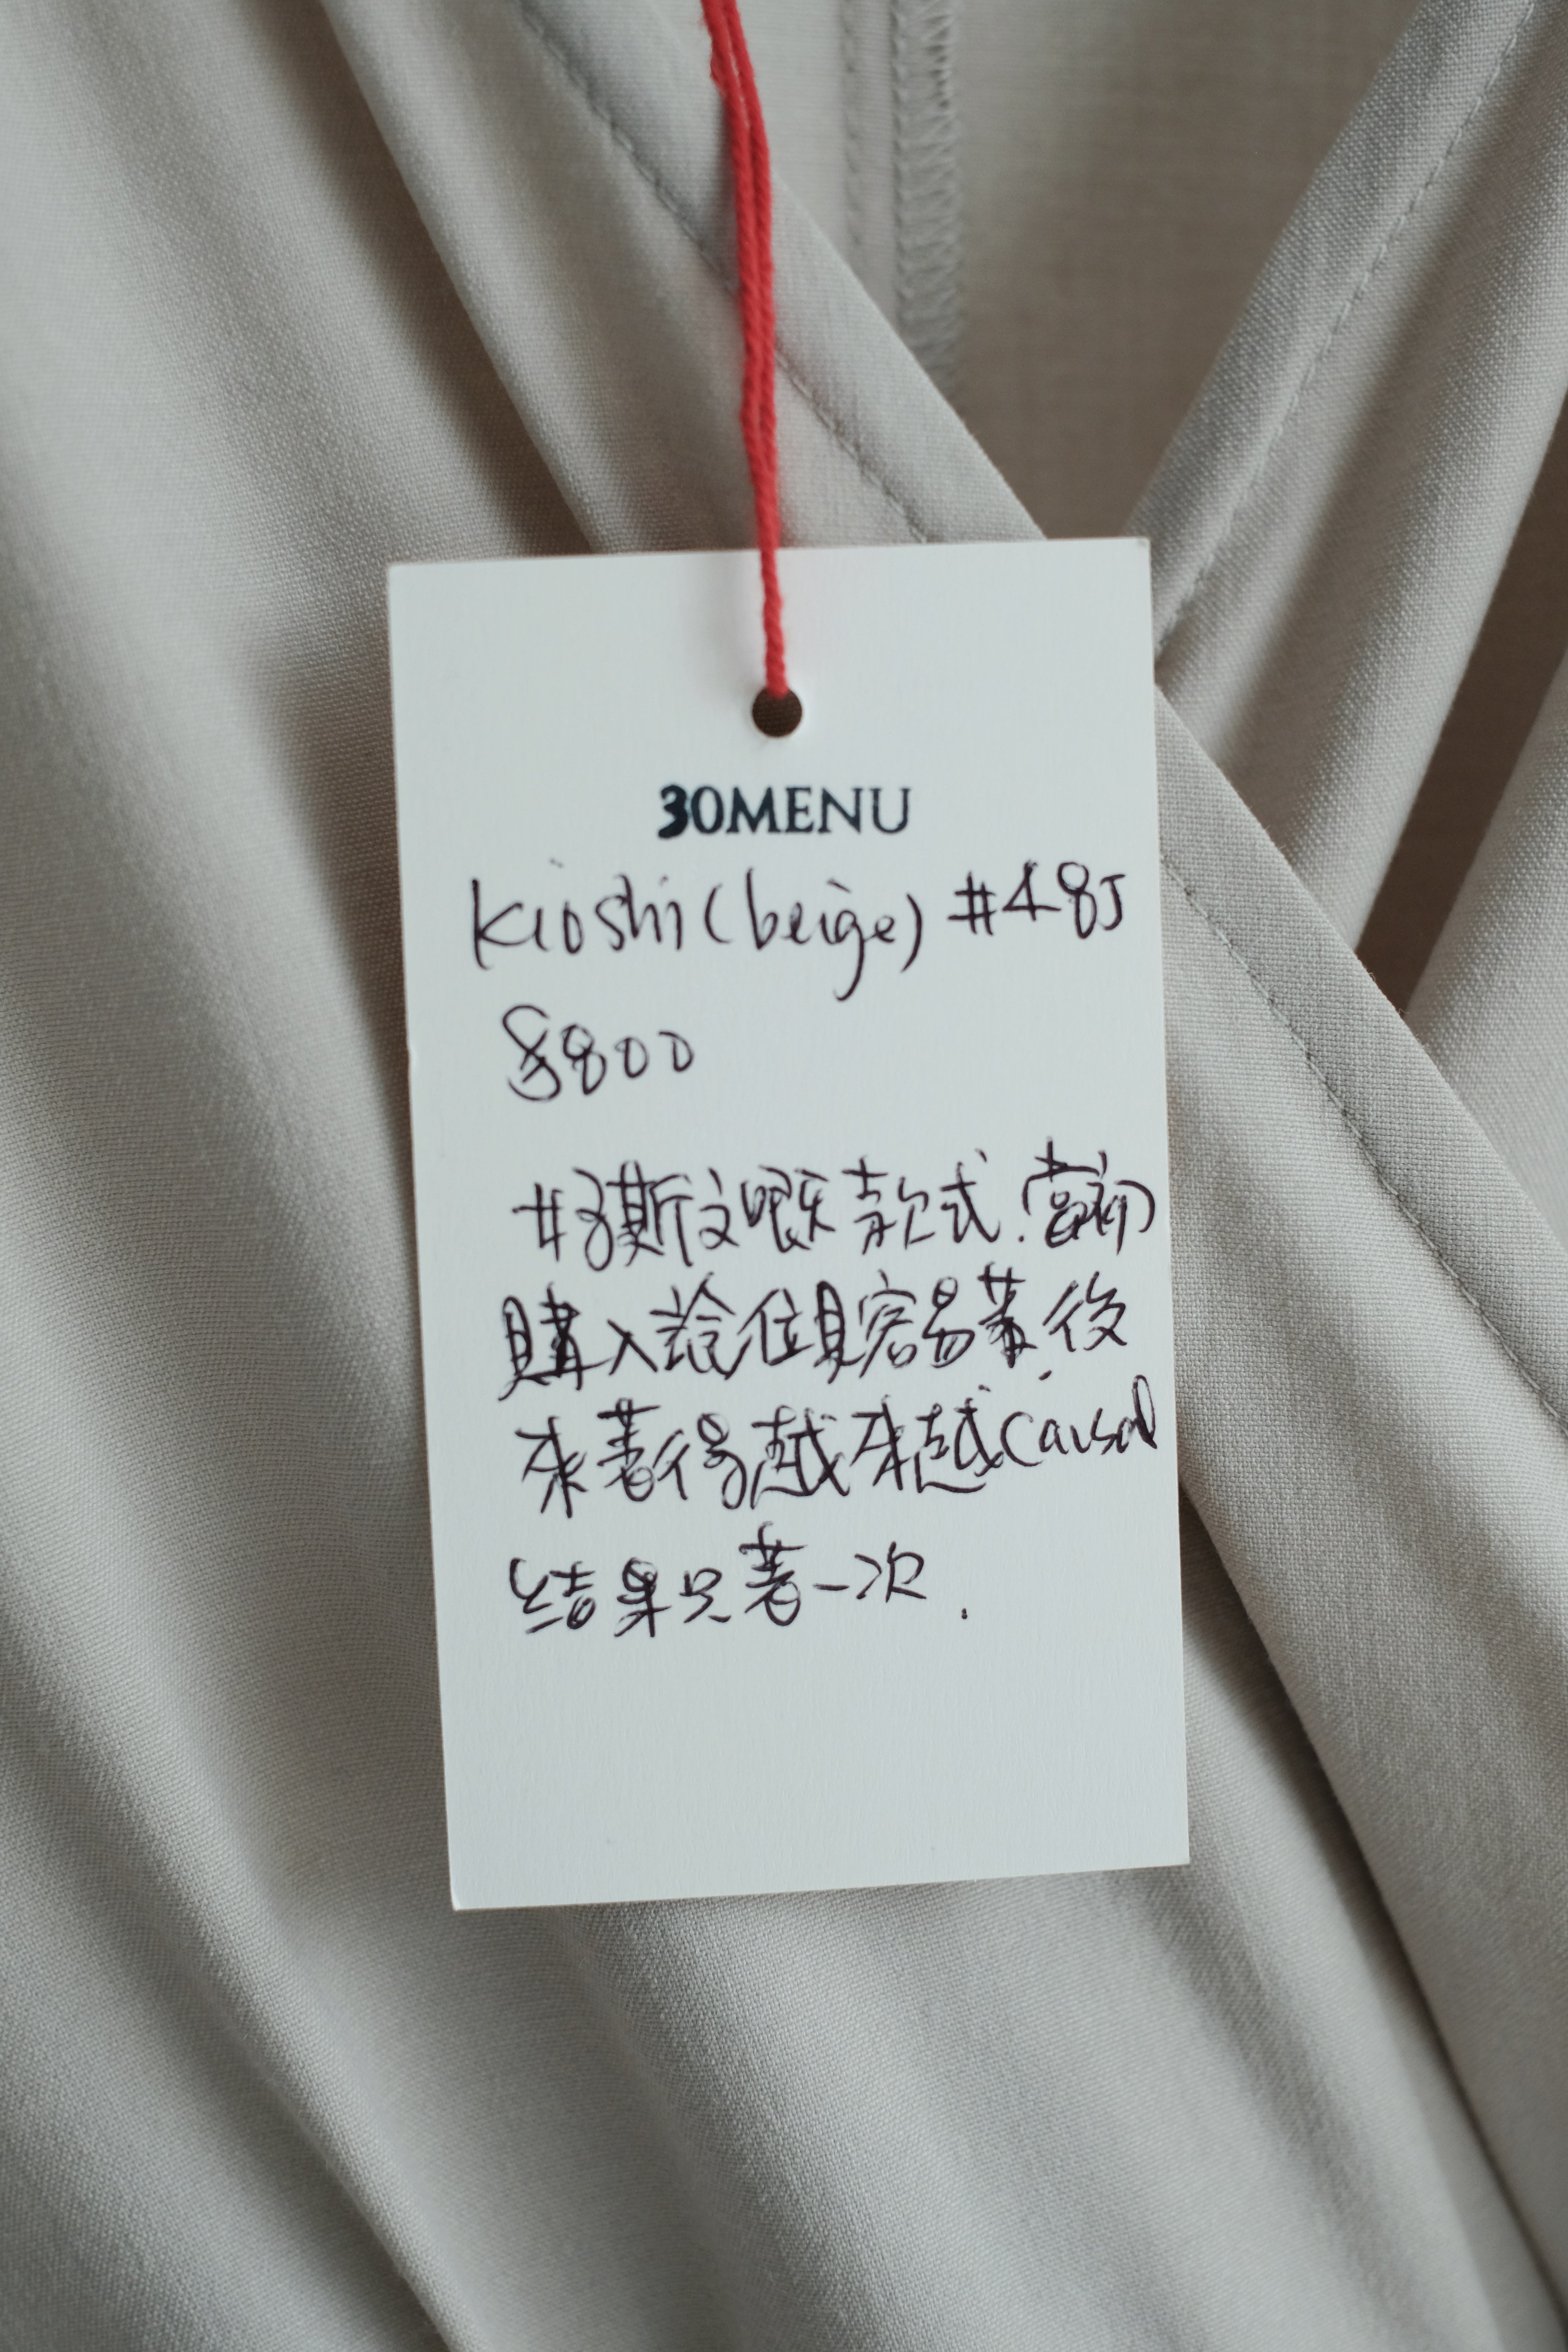 30MENU
Kioshi (beige) #485
$800
#好斯文嘅款式.當初
購入諗住見客易著,後
來著得越來越causal
結果只著一次.